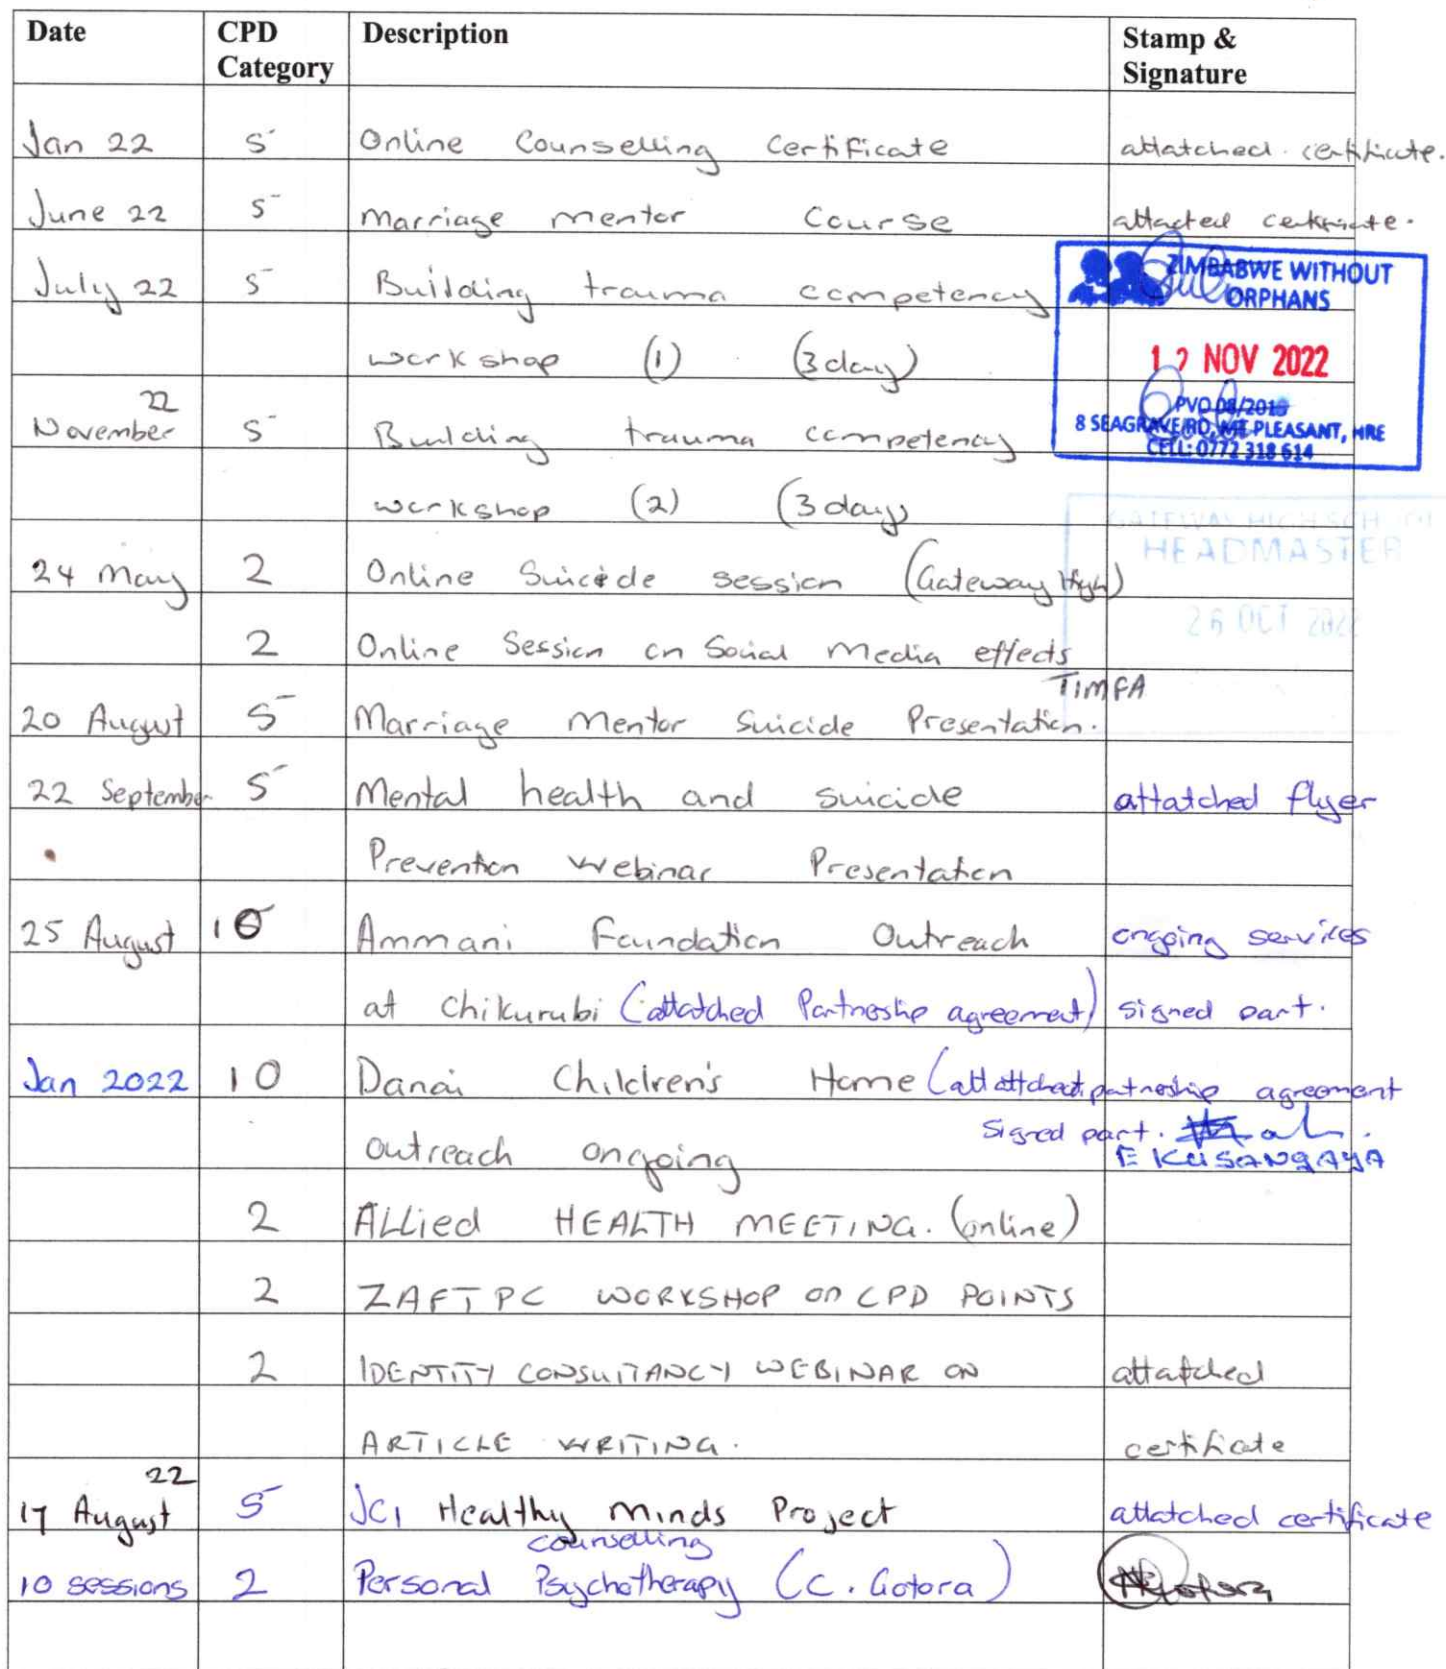 Date CPD Category Description Stamp & Signature
Jan 22 5 Online Counselling Certificate attatched certificate.
June 22 5 Marriage mentor Course attacted certificate.
July 22 5 Building trauma competency
ZIMBABWE WITHOUT
ORPHANS
workshop (1) (3 day)
12 NOV 2022
PVO 08/2018
8 SEAGRAVE RD, MT PLEASANT, HRE
CELL: 0772 318 614
22
November 5 Building trauma competency
workshop (2) (3 day)
GATEWAY HIGH SCHOOL
HEADMASTER
26 OCT 2022
24 May 2 Online Suicide session (Gateway High)
2 Online Session on Social Media effects
TIMFA
20 August 5 Marriage Mentor Suicide Presentation.
22 September 5 Mental health and suicide attatched flyer
Prevention webinar Presentation
25 August 10 Ammani Foundation Outreach ongoing services
at Chikurubi (attatched Partneship agreement) signed part.
Jan 2022 10 Danai Children's Home (attattched patneship agreement
signed part.
outreach ongoing E KUSANGAYA
2 ALLied HEALTH MEETING. (online)
2 ZAFTPC WORKSHOP on CPD POINTS
2 IDENTITY CONSULTANCY WEBINAR ON attatched
ARTICLE WRITING. certificate
22
17 August 5 JCI Healthy Minds Project attatched certificate
counselling
10 sessions 2 Personal Psychotherapy (C. Gotora)